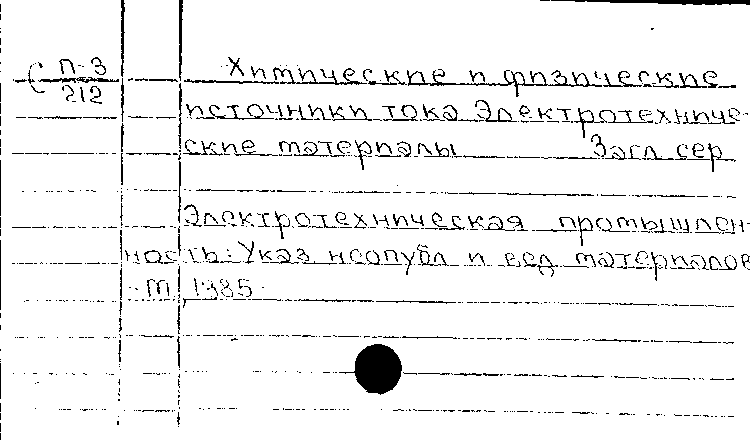 С П-3
212
Химические и физические
источники тока Электротехниче-
ские материалы Загл сер
Электротехническая промышлен-
ность: Указ неопубл и вед материалов
М, 1985